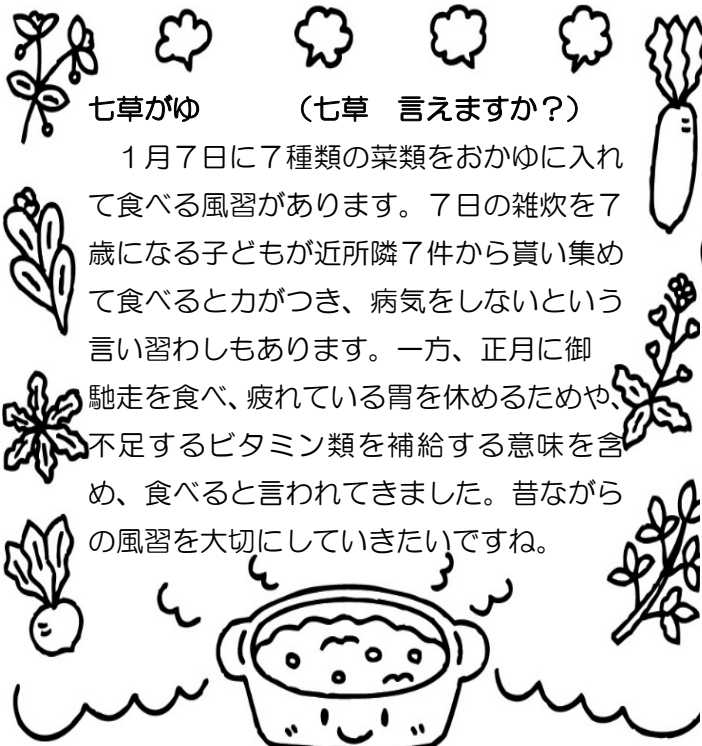 七草がゆ　　　（七草　言えますか？）
　１月７日に７種類の菜類をおかゆに入れ
て食べる風習があります。７日の雑炊を７
歳になる子どもが近所隣７件から貰い集め
て食べると力がつき、病気をしないという
言い習わしもあります。一方、正月に御
馳走を食べ、疲れている胃を休めるためや、
不足するビタミン類を補給する意味を含
め、食べると言われてきました。昔ながら
の風習を大切にしていきたいですね。